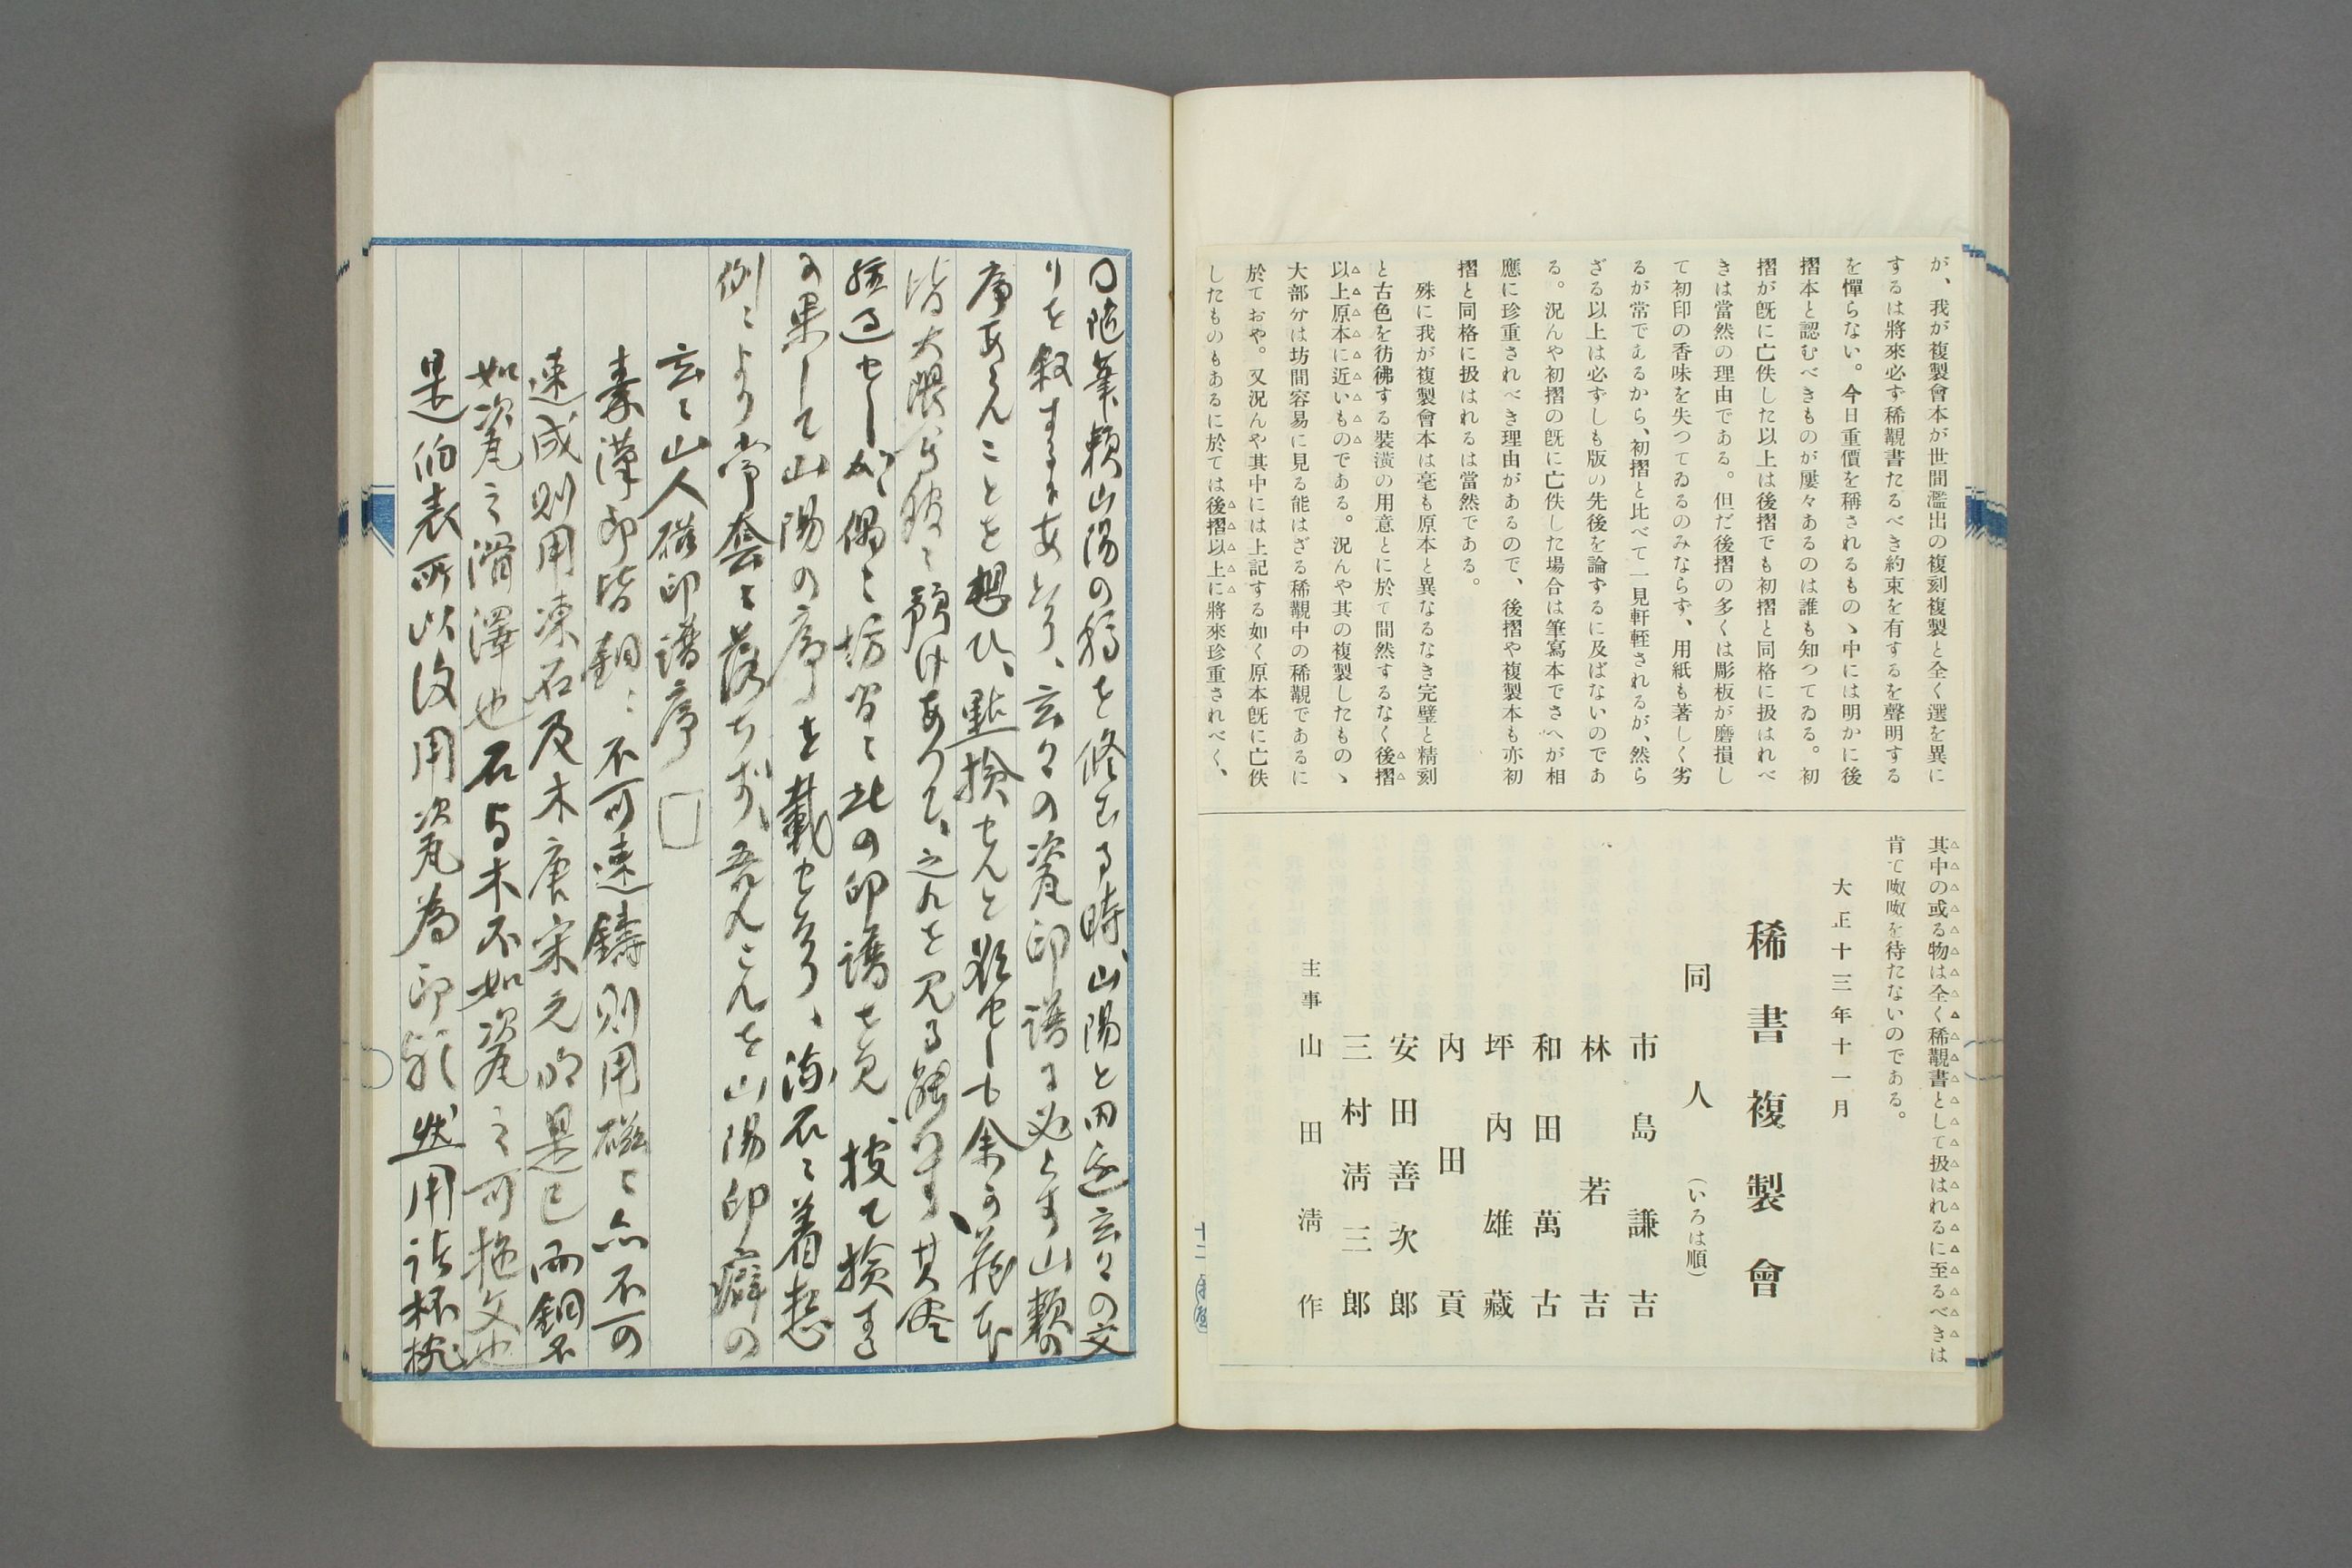 が、我が複製會本が世間濫出の複刻複製と全く選を異に
するは將來必ず稀覯書たるべき約束を有するを聲明する
を憚らない。今日重價を稱されるものヽ中には明かに後
摺本と認むべきものが屢々あるのは誰も知つてゐる。初
摺が旣に亡佚した以上は後摺でも初摺と同格に扱はれべ
きは當然の理由である。但だ後摺の多くは彫板が磨損し
て初印の香味を失つてゐるのみならず、用紙も著しく劣
るが常であるから、初摺と比べて一見軒輊されるが、然ら
ざる以上は必ずしも版の先後を論ずるに及ばないのであ
る。況んや初摺の旣に亡佚した場合は筆寫本でさへが相
應に珍重されべき理由があるので、後摺や複製本も亦初
摺と同格に扱はれるは當然である。
殊に我が複製會本は毫も原本と異なるなき完璧と精刻
と古色を彷彿する裝潢の用意とに於て間然するなく後摺
以上原本に近いものである。況んや其の複製したものヽ
大部分は坊間容易に見る能はざる稀覯中の稀覯であるに
於ておや。又況んや其中には上記する如く原本旣に亡佚
したものもあるに於ては後摺以上に將來珍重されべく、
其中の或る物は全く稀覯書として扱はれるに至るべきは
肯て呶呶を待たないのである。
大正十三年十一月
稀書複製會
同人（いろは順）
市島謙吉
林若吉
和田萬古
坪内雄藏
内田貢
安田善次郎
三村淸三郎
主事 山田淸作
十二
随筆頼山陽の稿を修むる時、山陽と田邊玄々の交
りを叙するにあたり、玄々の瓷印譜に必らず山陽の
序あらんことを想ひ、點撿せんと欲せしも余の藏本
皆大隈 預けありて、之れを見る能はず、其儘
經過せしが、偶々坊間に此の印譜を見、披て撿する
に果して山陽の序を載せたり、流石に着想
例により常套に落ちず、吾れこれを山陽印癖の
玄々山人磁印譜序
秦漢印皆銅々不可速鑄則用磁々亦不可
速成則用凍石及木唐宋元明是已而銅不
如瓷之滑澤也石与木不如瓷之可施文也
是伯表所以後用瓷為印 然用諸杯椀